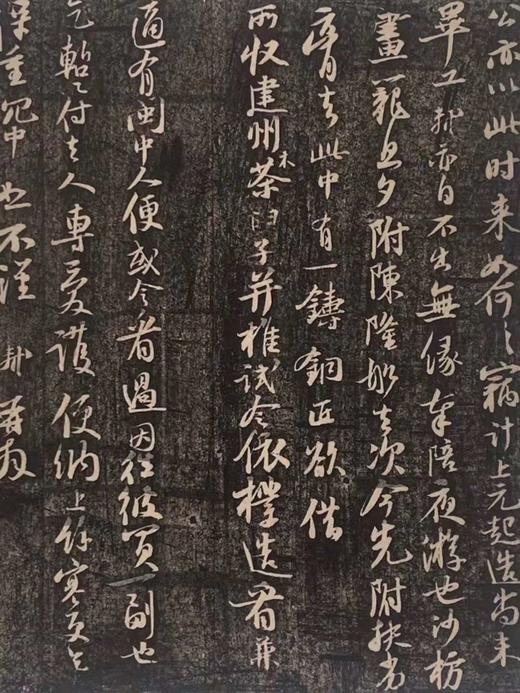 公亦以此时来如何々竊計上元起造尚未
畢工軾亦自不出無緣奉陪夜游也沙枋
畫籠旦夕附陳隆船去次今先附扶劣
膏去此中有一鑄銅匠欲借
所收建州木茶臼子并椎試令依樣造看兼
適有閩中人便或令看過因往彼買一副也
乞蹔付去人專愛護便納上餘寒更乞
保重冗中恕不謹 軾再拜